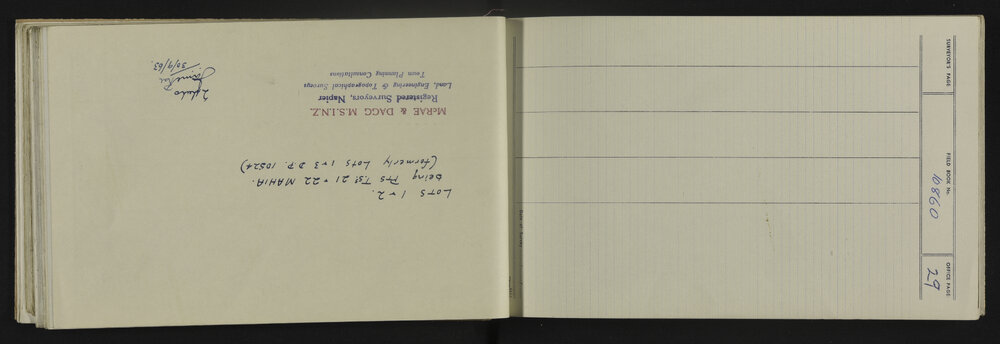 LOTS 1 & 2.
being Pts T.S! 21 & 22 MAHIA.
(formerly Lots 1 & 3 D.P. 10524)
McRAE & DAGG M.S.I.N.Z.
Registered Surveyors, Napier
Land, Engineering & Topographical Surveys
Town Planning Consultations
30/9/63.
SURVEYOR'S PAGE
FIELD BOOK No.
10860
OFFICE PAGE
29
Date of Survey